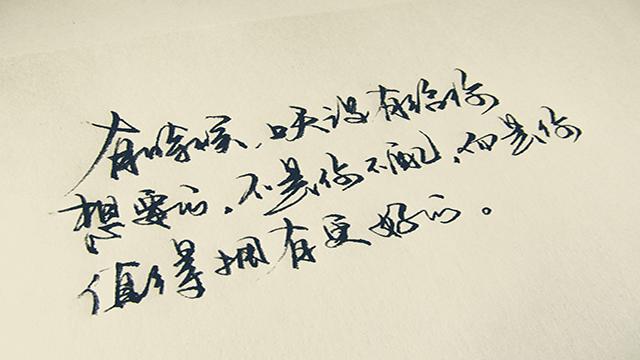 有时候，上天没有给你
想要的，不是你不配，而是你
值得拥有更好的。